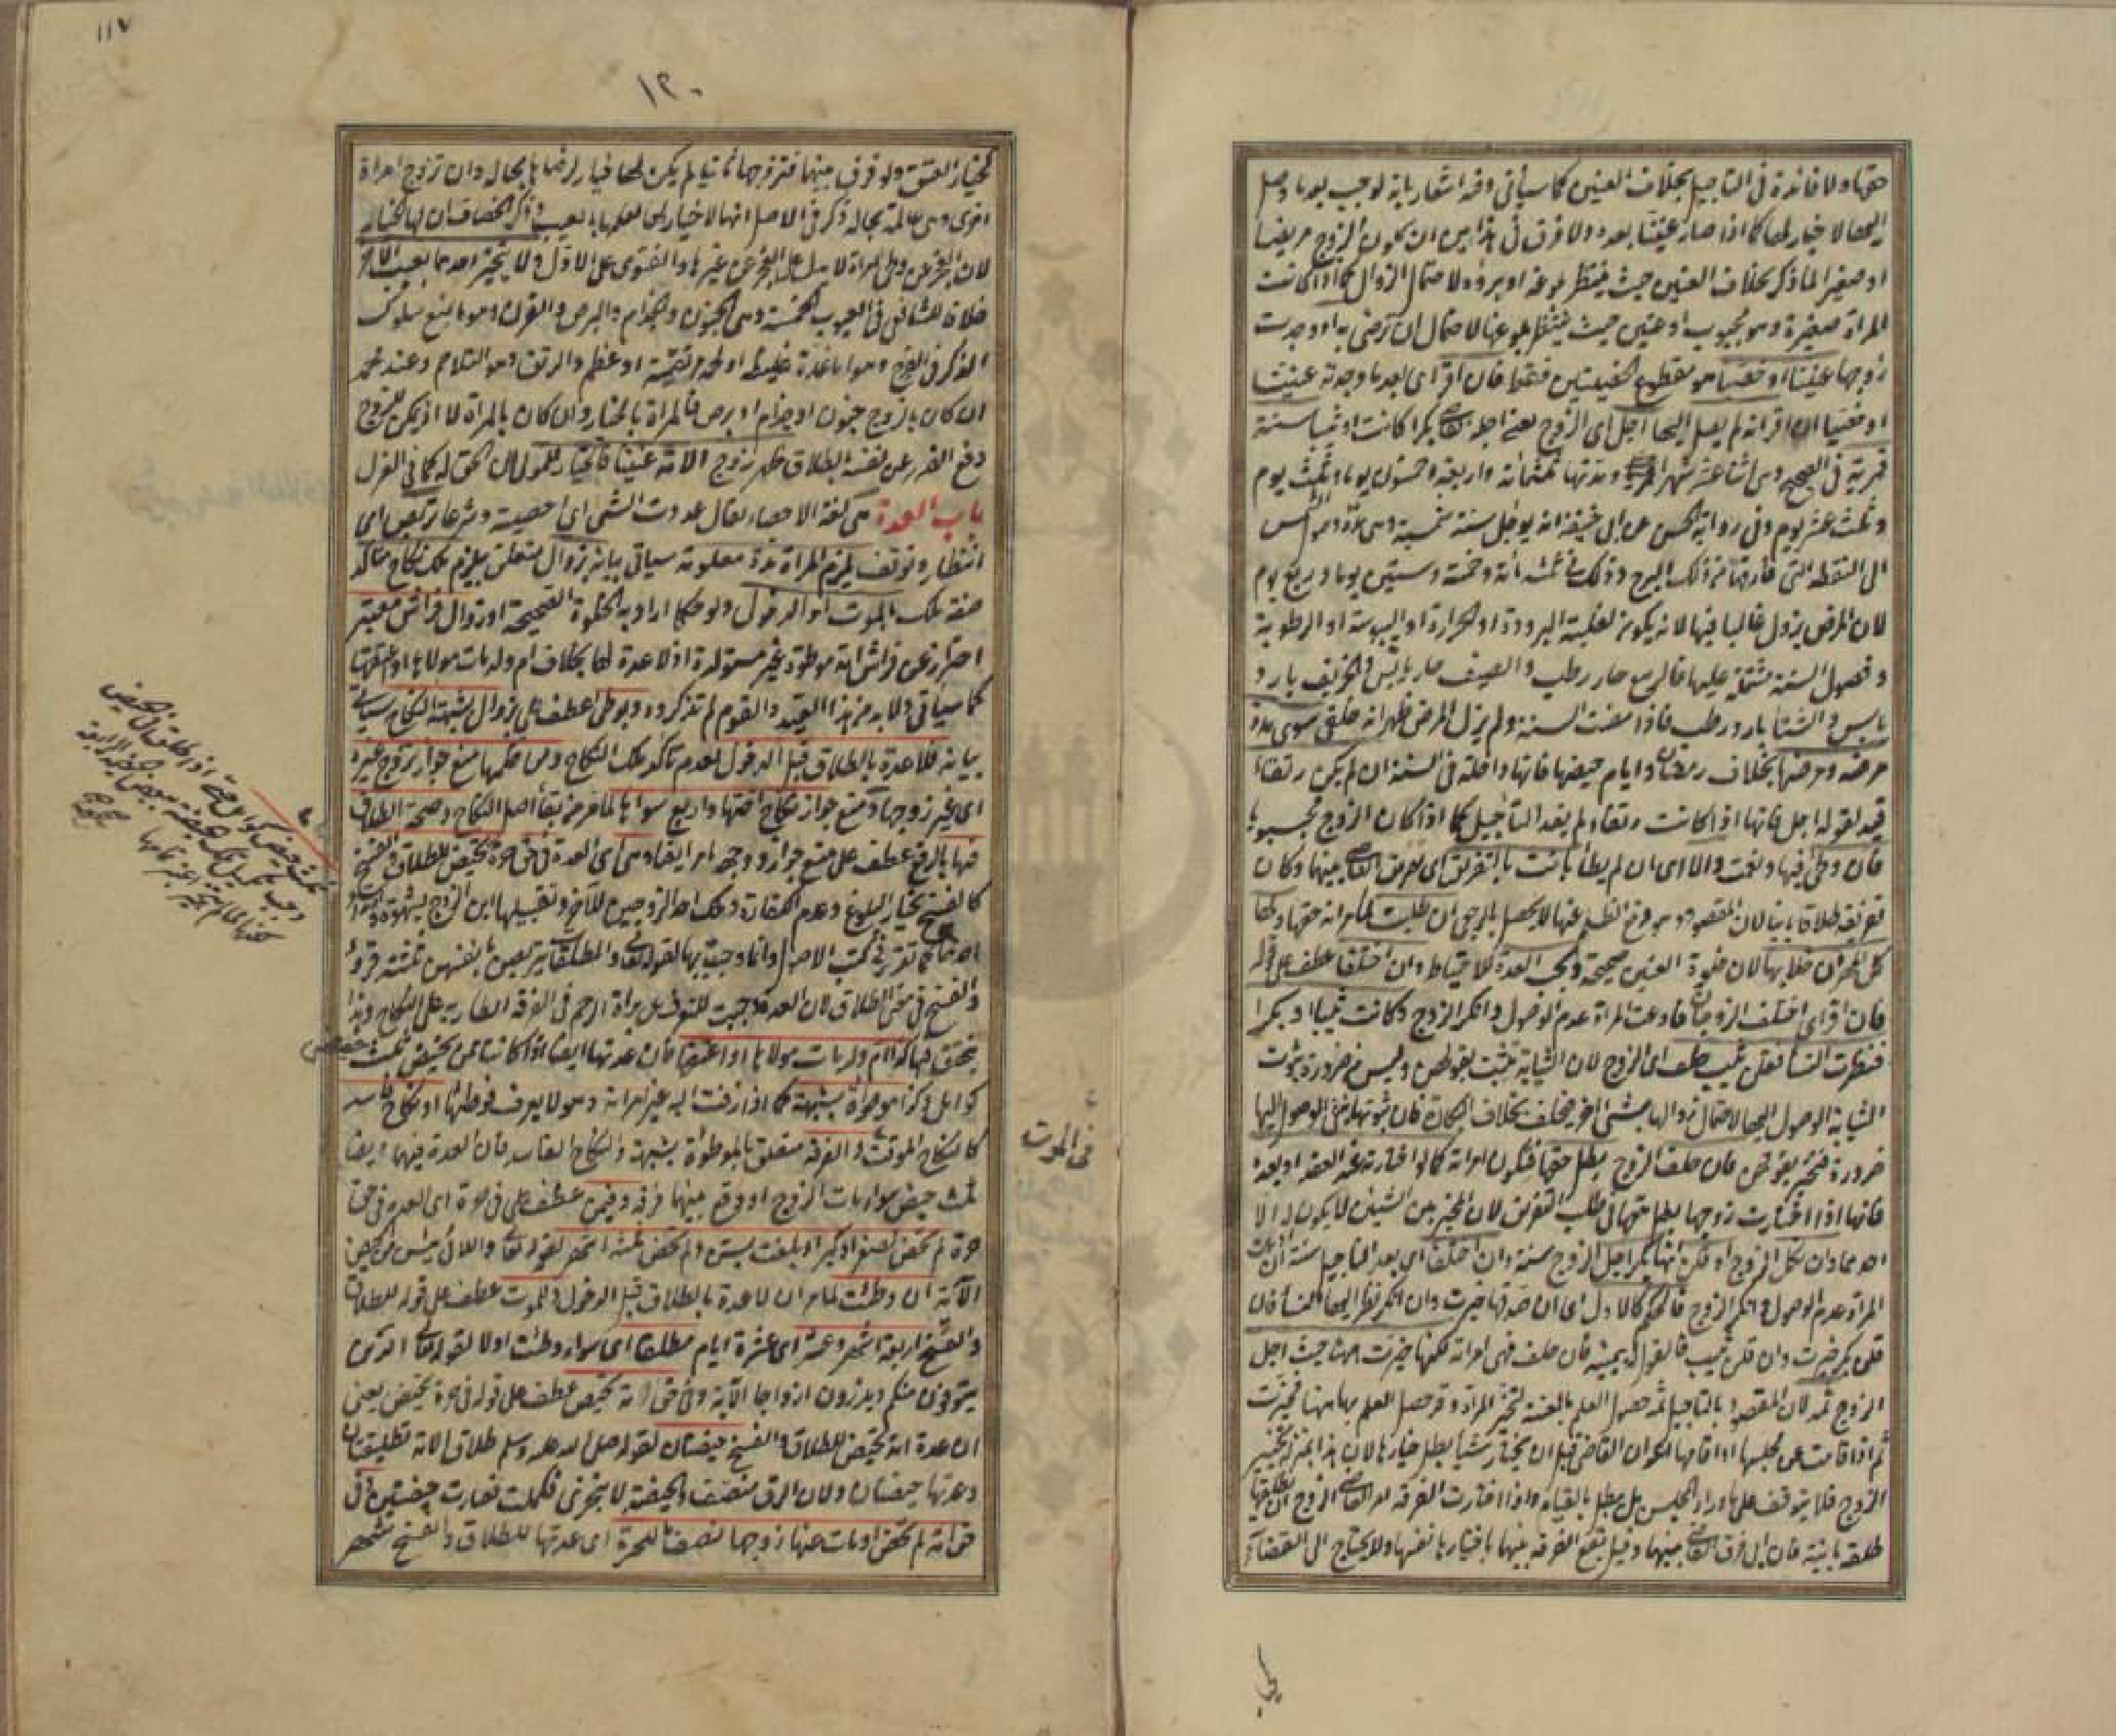 حقها ولا فائدة في التأجيل بخلاف العنين كما سيأتي وفيه اشعار بانه لوجب بعد ما وصل
اليها لا خيار لها كما اذا صار عنينا بعده ولا فرق في هذا بين ان يكون الزوج مريضا
او صغيرا لما ذكر بخلاف العنين حيث ينتظر بلوغه او برؤه لاحتمال الزوال كما اذا كانت
المراة صغيرة وهو مجبوب او عنين حيث ينتظر بلوغها لاحتمال ان ترضى به او وجدت
زوجها عنينا او خصيا هو مقطوع الخصيتين فقط فان اقر اى بعد ما وجدته عنينا
او خصيا ان اقر انه لم يصل اليها اجل اى الزوج يعنى اجله القاضي بكرا كانت او ثيبا سنة
قمرية في الصحيح وهى اثنا عشر شهرا ومدتها ثلثمائة واربعة وخمسون يوما وثلث يوم
وثلث عشر يوم وفي رواية الحسن عن ابى حنيفة انه يؤجل سنة شمسية وهى مدة الشمس
الى النقطة التى فارقتها من ذلك البرج وذلك في ثلثمائة وخمسة وستين يوما وربع يوم
لان المرض يزول غالبا فيها لانه يكون لغلبة البرودة او الحرارة او اليبوسة او الرطوبة
وفصول السنة مشتملة عليها فالربيع حار رطب والصيف حار يابس والخريف بارد
يابس والشتا بارد رطب فاذا مضت السنة ولم يزل المرض ظهر انه خلقى سوى مدة
مرضه ومرضها بخلاف رمضان وايام حيضها فانها داخلة في السنة ان لم يكن رتقاء
قيد لقوله اجل فانها اذا كانت رتقاء لم يفد التأجيل كما اذا كان الزوج مجبوبا
فان وطئ فيها ونعمت والا اى ان لم يطأ بانت بالتفريق اى بتفريق القاضي بينهما وكان
تفريقه طلاقا باينا لان المقصود وهو دفع الظلم عنها لا يحصل بالرجعى ان طلبت المراة حقها ولها
كل المهر ان خلا بها لان خلوة العنين صحيحة وتجب العدة للاحتياط وان اختلفا عطف على قوله
فان اقر اى اختلف الزوجان فادعت المراة عدم الوصول وانكر الزوج وكانت ثيبا او بكرا
فنظرت النسأ فقلن ثيب حلف اى الزوج لان الثيابة تثبت بقولهن وليس من ضرورة ثبوت
الثيابة الوصول اليها لاحتمال زوالها بشئ اخر فيحلف بخلاف البكارة فان ثبوتها ينفى الوصول اليها
ضرورة فتخير بقولهن فان حلف الزوج بطل حقها فتكون امراته كما لو اختارته عند العقد او بعده
فانها اذا اختارت زوجها بطل حقها في طلب التفريق لان المخير بين الشيئين لا يكون له الا
احدهما وان نكل الزوج او قلن انها بكر اجل الزوج سنة وان اختلفا اى بعد التأجيل سنة ان ادعت
المراة عدم الوصول وانكر الزوج فالحكم كالاول اى ان صدقها خيرت وان انكر نظر اليها النسأ فان
قلن بكر خيرت وان قلن ثيب فالقول له بيمينه فان حلف فهى امراته لكنها خيرت ههنا حيث اجل
الزوج ثمه لان المقصود بالتاجيل ثمه حصول العلم بالعنة لتخير المراة وقد حصل العلم بها ههنا فخيرت
ثم اذا قامت عن مجلسها او اقامها اعوان القاضى قبل ان تختار شيا بطل خيارها لان هذا بمنزلة تخيير
الزوج فلا يتوقف على ما وراء المجلس بل يبطل بالقيام واذا اختارت الفرقة امر القاضي الزوج ان يطلقها
طلقة بائنة فان ابى فرق القاضي بينهما وقيل تقع الفرقة بينهما باختيارها نفسها ولا يحتاج الى القضاء
١٢٠
١١٧
كخيار العتق ولو فرق بينهما فتزوجها ثانيا لم يكن لها خيار لرضاها بحاله وان تزوج امراة
اخرى وهى عالمة بحاله ذكر في الاصل انها لا خيار لها لعلمها بالعيب وذكر الخصاف ان لها الخيار
لان العجز عن وطئ امراة لا يدل على العجز عن غيرها والفتوى على الاول ولا يتخير احدهما بعيب الاخر
خلافا للشافعى في العيوب الخمسة وهى الجنون والجذام والبرص والقرن وهو ما يمنع سلوك
الذكر في الفرج وهو اما غدة غليظة او لحمة مرتتقة او عظم والرتق وهو التلاحم وعند محمد
ان كان بالزوج جنون او جذام او برص فالمراة بالخيار وان كان بالمراة لا اذ يمكن للزوج
دفع الضرر عن نفسه بالطلاق ظهر زوج الامة عنينا فالخيار للمولى لان الحق له كما في العزل
باب العدة هى لغة الاحصاء يقال عددت الشئ اى احصيته وشرعا تربص اى
انتظار وتوقف يلزم المراة مدة معلومة سيأتى بيانه بزوال متعلق بيلزم ملك نكاح متأكد
صفة ملك بالموت او الدخول ولو حكما اراد به الخلوة الصحيحة او زوال فراش معتبر
احترازعن فراش امة موطوءة غير مستولدة اذ لا عدة لها بخلاف ام ولد مات مولاها او اعتقها
كما سيأتى ولا بد من هذا القيد والقوم لم تذكروه وبوطئ عطف على بزوال بشبهة النكاح سيأتى
بيانه فلا عدة بالطلاق قبل الدخول لعدم تأكد ملك النكاح ومن حكمها منع جواز تزوج غيره
اى غير زوجها ومنع جواز نكاح اختها واربع سواها لما مر من بقاء اصل النكاح وصحة الطلاق
فيها بالرفع عطف على منع جواز ووجهه ما مر ايضا وهى اى العدة في حق حرة تحيض للطلاق والفسخ
كالفسخ بخيار البلوغ وعدم الكفاءة وملك احد الزوجين للآخر وتقبيلها ابن الزوج بشهوة وارتداد
احدهما كما تقرر في كتب الاصول وانما وجبت بها لقوله تعالى والمطلقات يتربصن بانفسهن ثلثة قروء
والفسخ في معنى الطلاق لان العدة وجبت للتعرف عن براءة الرحم في الفرقة الطارية على النكاح وهذا
يتحقق فيها كذا ام ولد مات مولاها او اعتقها فان عدتها ايضا اذا كانت ممن تحيض ثلث حيض
كوامل وكذا موطوأة بشبهة كما اذا زفت اليه غير امراته وهو لا يعرف فوطئها او نكاح فاسد
كالنكاح الموقت والفرقة متعلق بالموطوأة بشبهة والنكاح الفاسد فان العدة فيهما ايضا
ثلث حيض سواء مات الزوج او وقع بينهما فرقة وفيمن عطف على في حرة اى العدة في حق
حرة لم تحض لصغر او كبر او بلغت بسن ولم تحض ثلثة اشهر لقوله تعالى واللائى يئسن من المحيض
الآية ان وطئت لما مر ان لا عدة بالطلاق قبل الدخول وللموت عطف على قوله للطلاق
والفسخ اربعة اشهر وعشر اى عشرة ايام مطلقا اى سواء وطئت اولا لقوله تعالى الذين
يتوفون منكم ويذرون ازواجا الآية وفى حق امة تحيض عطف على قوله في حرة تحيض يعنى
ان عدة امة تحيض للطلاق والفسخ حيضتان لقوله صلى الله عليه وسلم طلاق الامة تطليقتان
وعدتها حيضتان ولان الرق منصف والحيضة لا تتجزى فكملت فصارت حيضتين وفى
حق امة لم تحض او مات عنها زوجها نصف ما للحرة اى عدتها للطلاق والفسخ شهر
في الموت